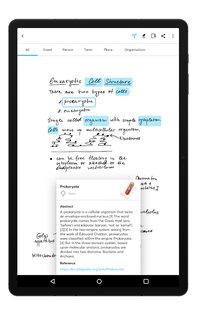 All Event Person Term Place Organisations
Eukaryotic Cell Structure
There are two types of cells
prokaryotic
eukaryotic
Single celled organism with simple cytoplasm
Cells make up multicellular organism.
ribosomes
can be free floating in the
cytoplasm or attached to the
endoplasmic reticulum
Prokaryote
Term
Abstract
A prokaryote is a cellular organism that lacks
an envelope-enclosed nucleus.[1] The word
prokaryote comes from the Greek πρό (pro,
'before') and κάρυον (karyon, 'nut' or 'kernel').
[2][3] In the two-empire system arising from
the work of Édouard Chatton, prokaryotes
were classified within the empire Prokaryota.
[4] But in the three-domain system, based
upon molecular analysis, prokaryotes are
divided into two domains: Bacteria and
Archaea.
Reference
https://en.wikipedia.org/wiki/Prokaryote
Golgi